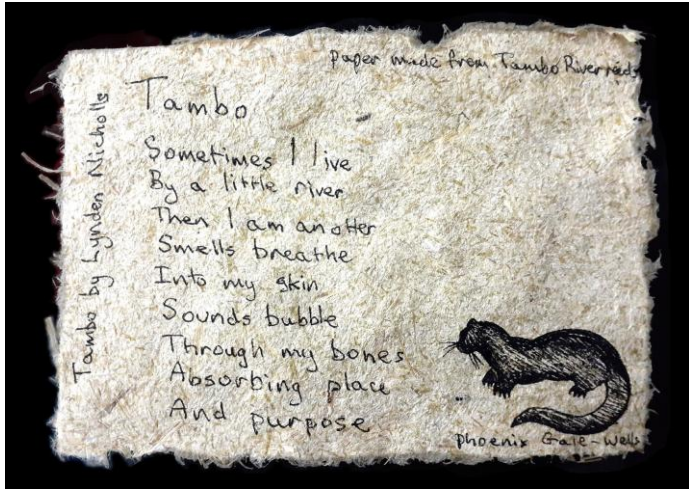 paper made from Tambo River reeds
Tambo by Lynden Nicholls
Tambo
Sometimes I live
By a little river
Then I am an otter
Smells breathe
Into my skin
Sounds bubble
Through my bones
Absorbing place
And purpose
Phoenix Gale-Wells